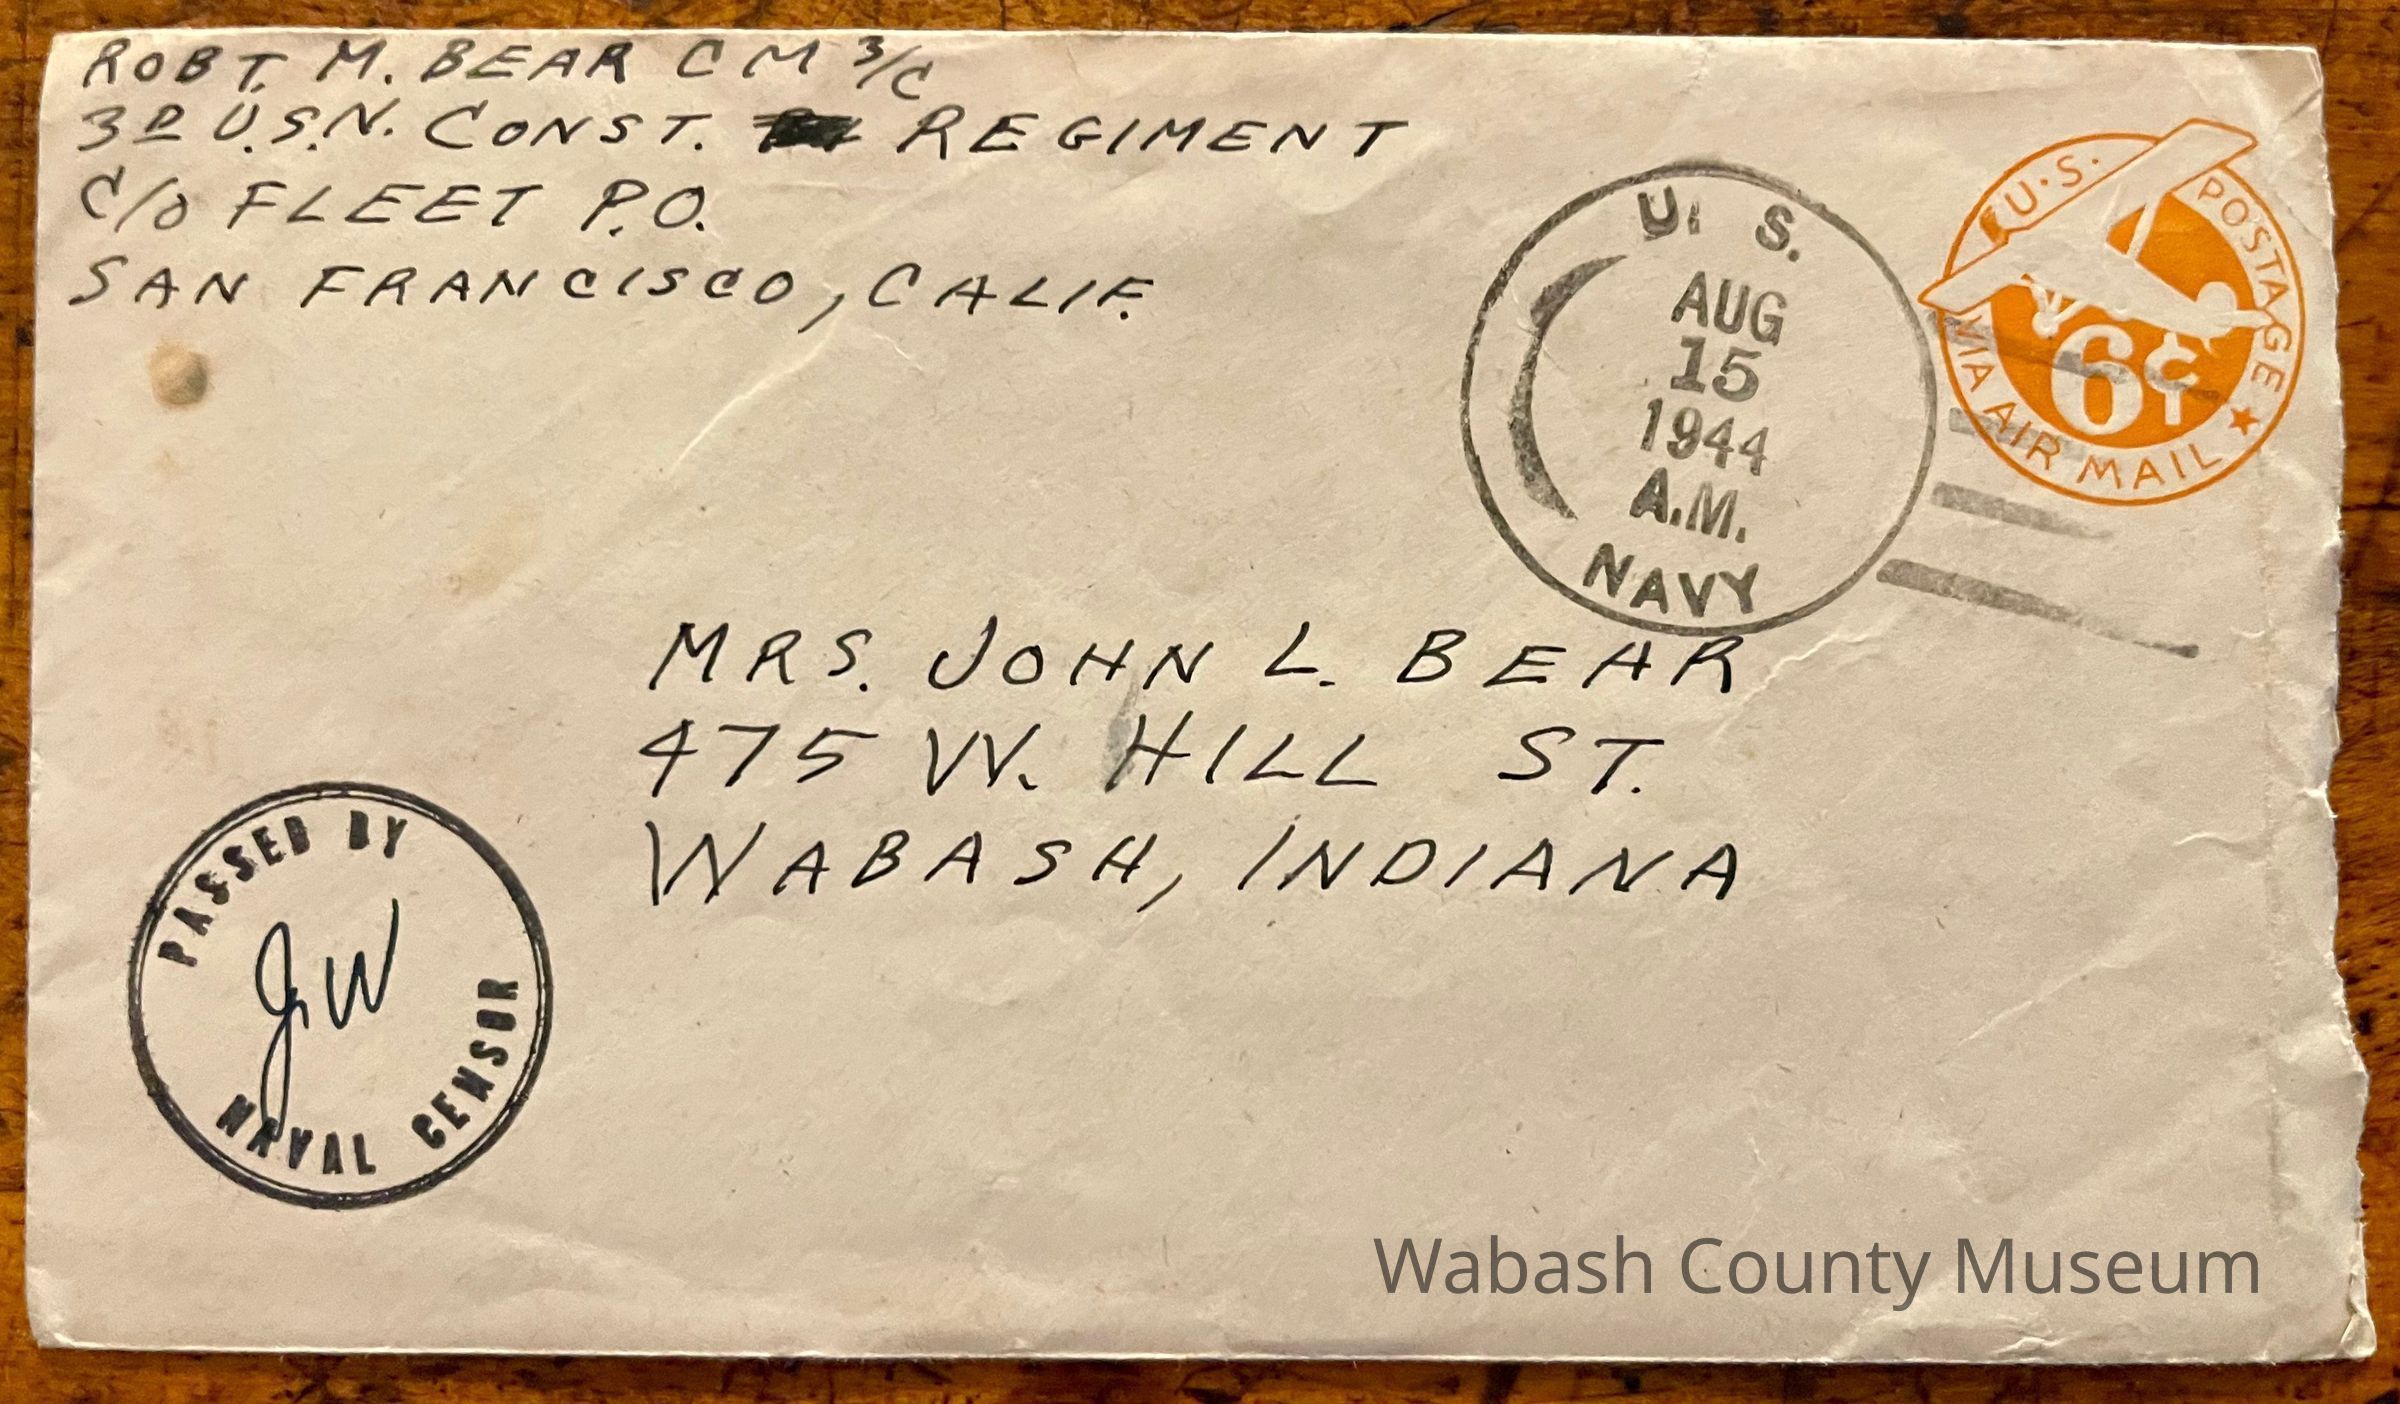 ROBT. M. BEAR CM 3/C
3D U.S.N. CONST. REGIMENT
C/O FLEET P.O.
SAN FRANCISCO, CALIF.
U. S.
AUG
15
1944
A.M.
NAVY
U.S. POSTAGE
6¢
VIA AIR MAIL
MRS. JOHN L. BEAR
475 W. HILL ST.
WABASH, INDIANA
PASSED BY
JW
NAVAL CENSOR
Wabash County Museum